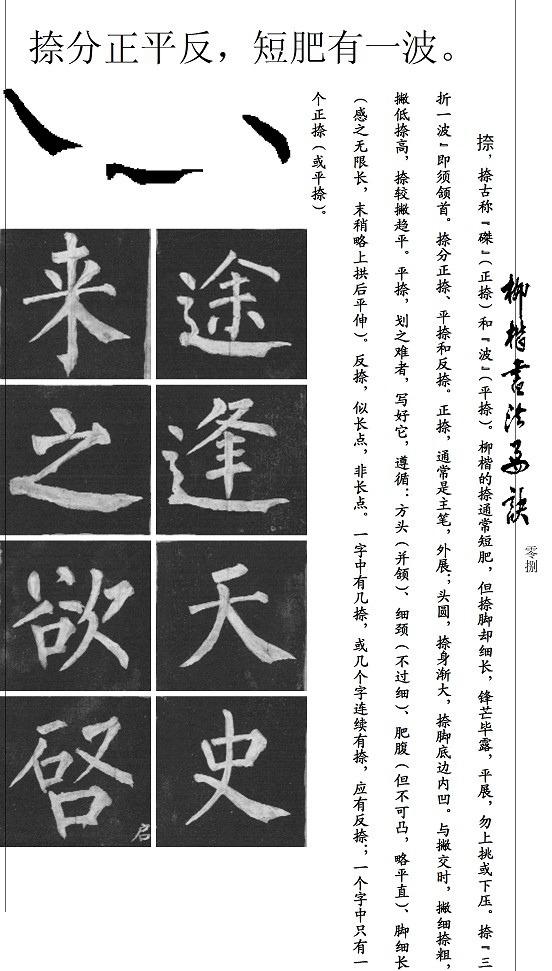 捺分正平反，短肥有一波。
柳楷书法要诀
零捌
捺，捺古称“磔”（正捺）和“波”（平捺）。柳楷的捺通常短肥，但捺脚却细长，锋芒毕露，平展，勿上挑或下压。捺“三
折一波”即须领首。捺分正捺、平捺和反捺。正捺，通常是主笔，外展；头圆，捺身渐大，捺脚底边内凹。与撇交时，撇细捺粗，
撇低捺高，捺较撇趋平。平捺，划之难者，写好它，遵循：方头（并颔）、细颈（不过细）、肥腹（但不可凸，略平直）、脚细长
（感之无限长，末稍略上拱后平伸）。反捺，似长点，非长点。一字中有几捺，或几个字连续有捺，应有反捺；一个字中只有一
个正捺（或平捺）。
途
逢
天
史
来
之
欲
啓
启